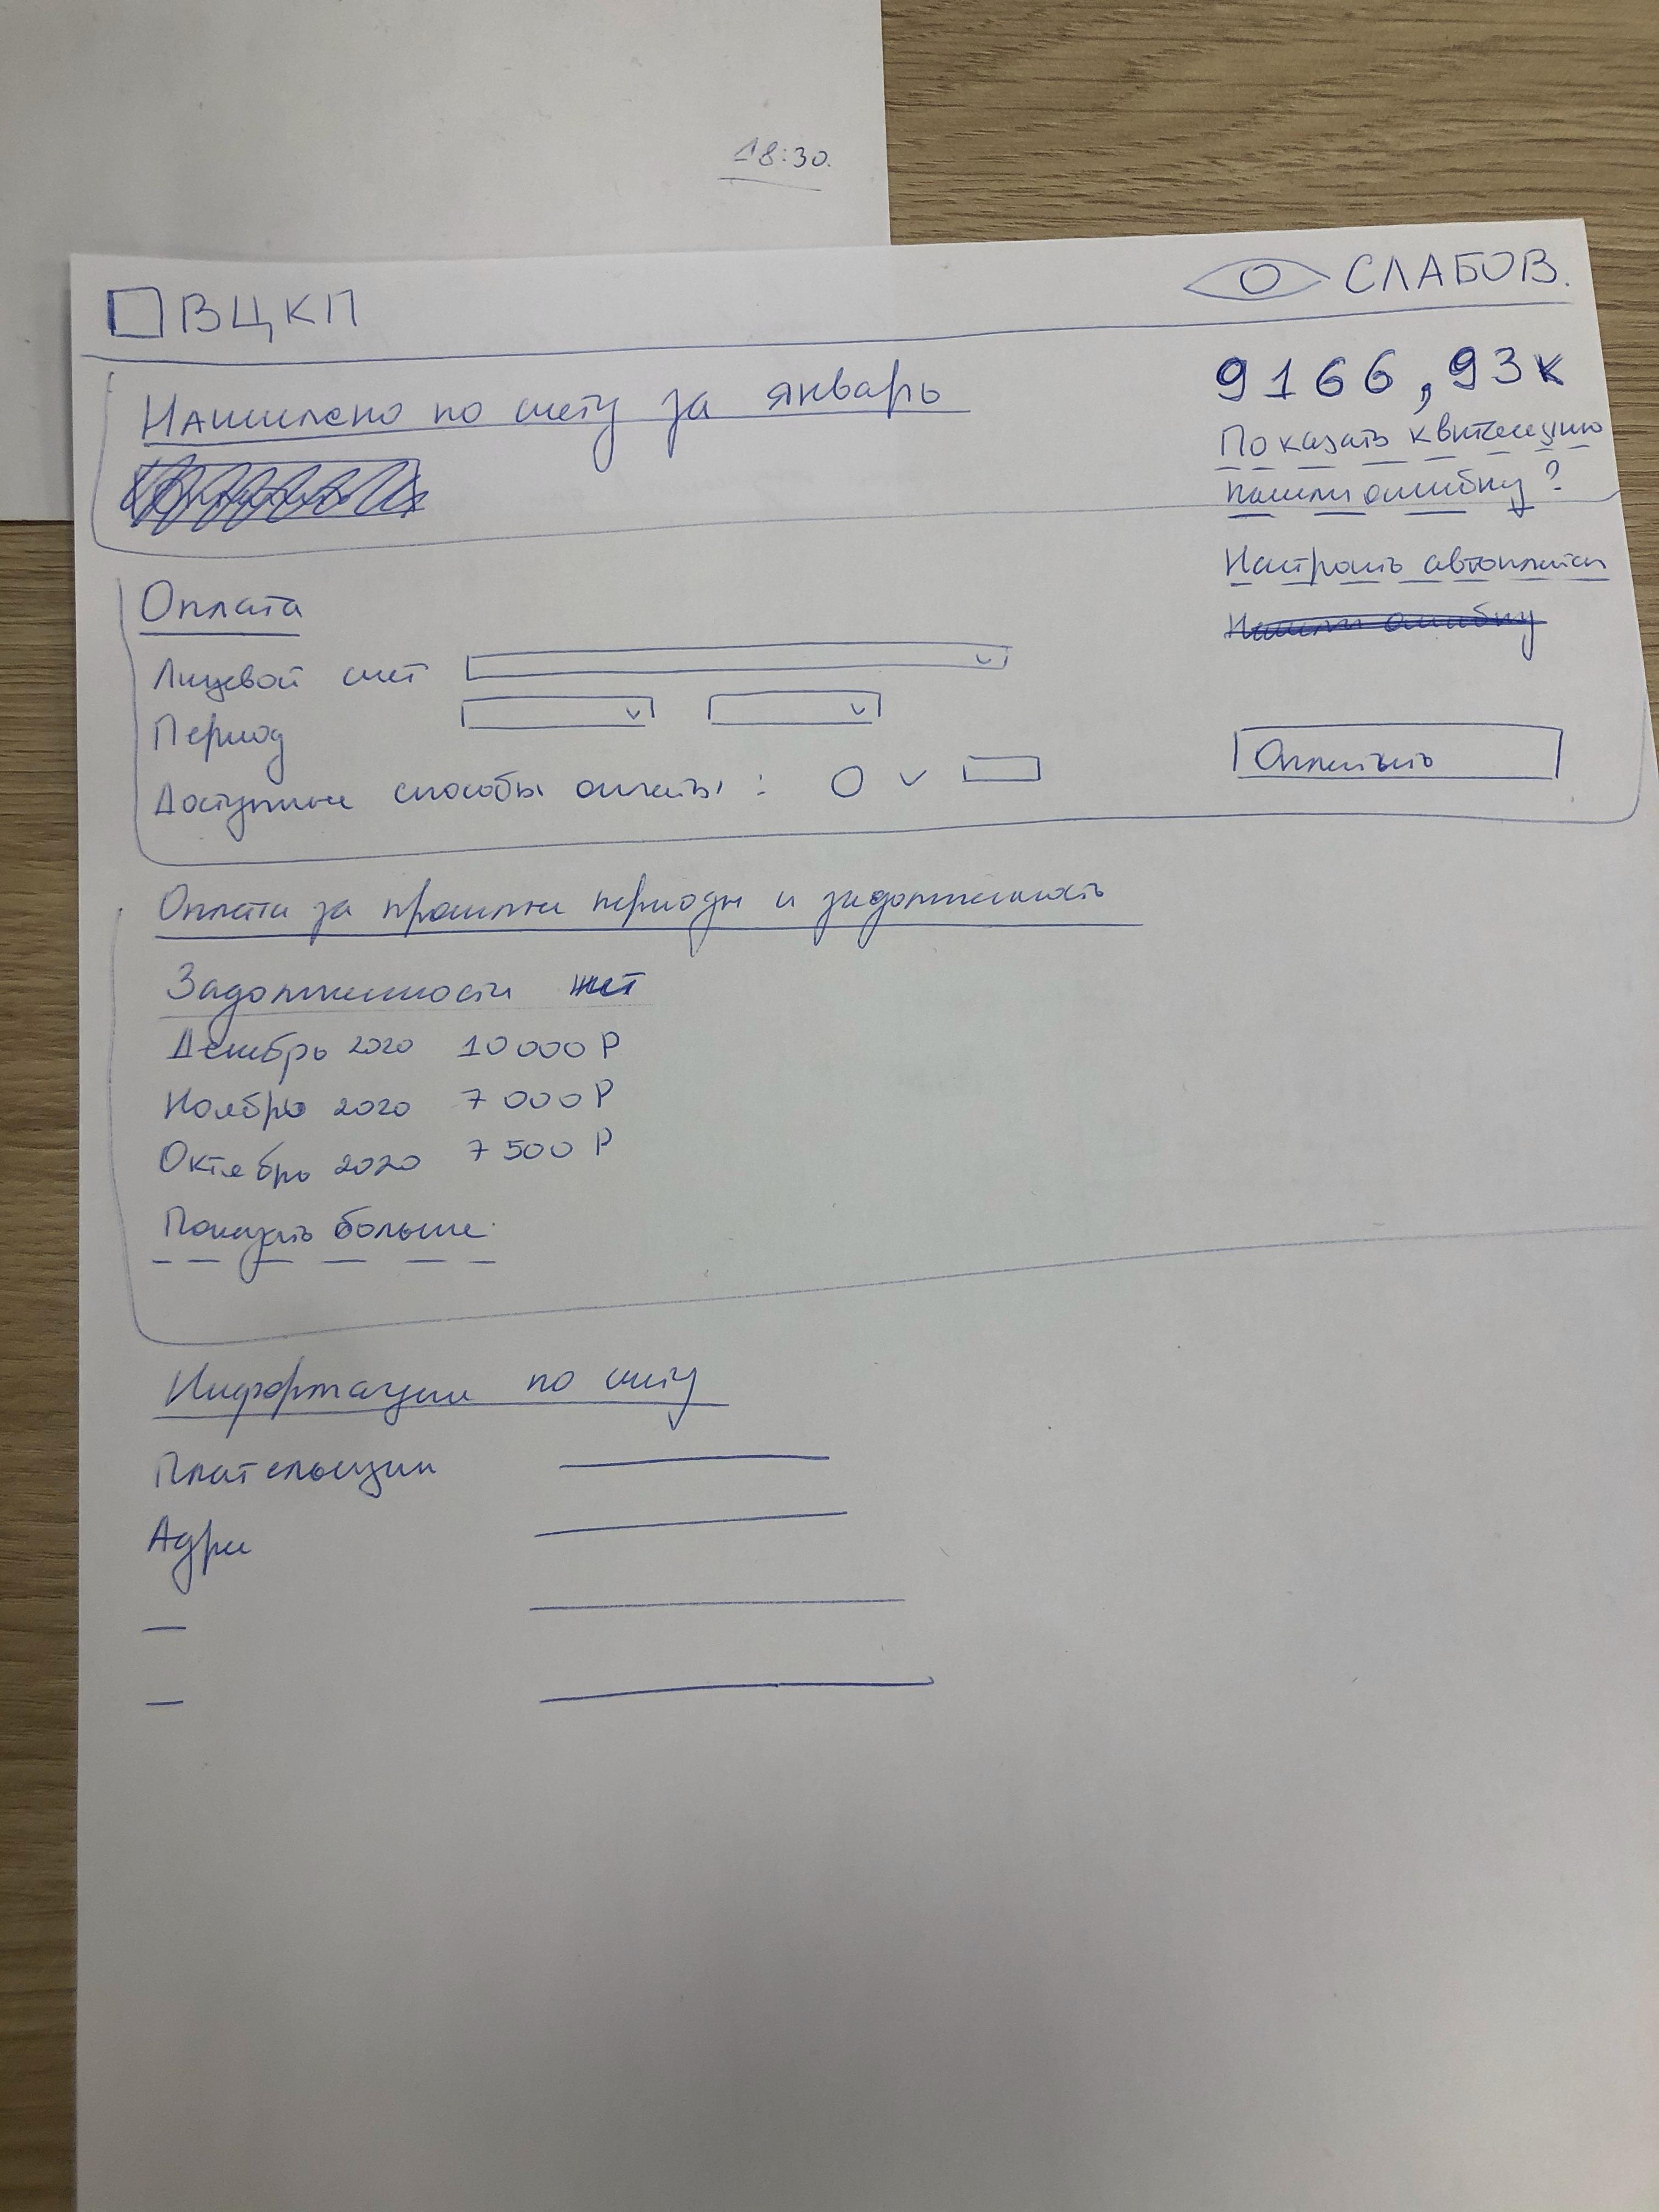 18:30.
ВЦКП
СЛАБОВ.
Начислено по счету за январь
9166,93к
Показать квитанцию
Нашли ошибку?
Настроить автоплатеж
Нашли ошибку
Оплата
Лицевой счет
Период
Доступные способы оплаты:
Оплатить
Оплата за прошлые периоды и задолженность
Задолженности нет
Декабрь 2020 10 000 Р
Ноябрь 2020 7 000 Р
Октябрь 2020 7 500 Р
Показать больше
Информация по счету
Плательщик
Адрес